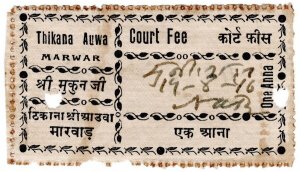 Thikana Auwa
MARWAR
श्री मुकुन जी
ठिकाना श्री आउवा
मारवाड़
Court Fee कोर्ट फीस
19-8-46
One Anna
एक आना